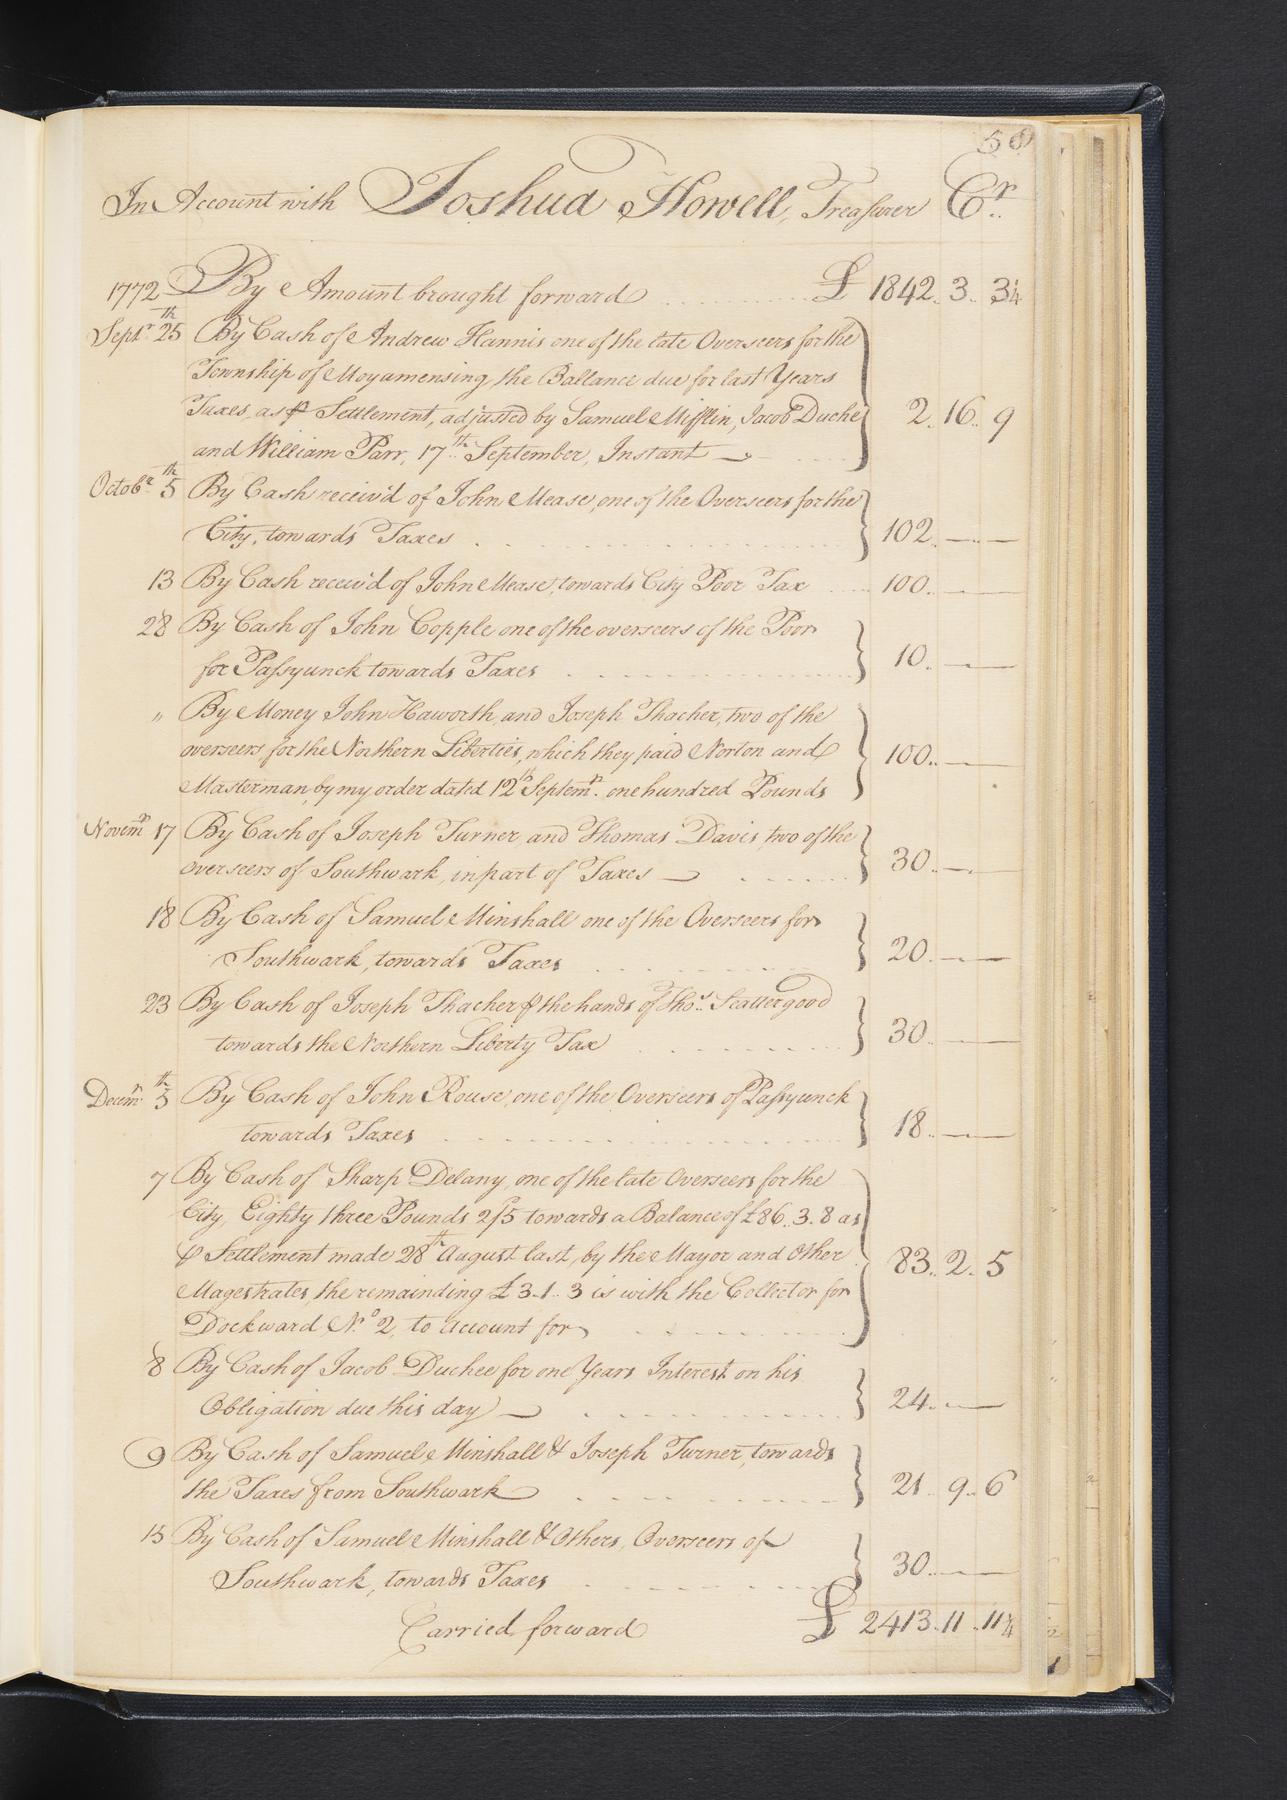 58
In Account with Joshua Howell, Treasurer Cr
1772 By Amount brought forward £ 1842.. 3.. 3¼
Septr 25th By Cash of Andrew Hannis one of the late Overseers for the
Township of Moyamensing, the Ballance due for last Years
Taxes, as ⅌ Settlement, adjusted by Samuel Mifflin, Jacob Duche 2.. 16.. 9
and William Parr, 17th September, Instant
Octobr 5th By Cash receiv'd of John Mease, one of the Overseers for the
City, towards Taxes 102.. — —
13 By Cash receiv'd of John Mease, towards City Poor Tax 100.. — —
28 By Cash of John Copple one of the overseers of the Poor
for Passyunck towards Taxes 10.. — —
" By Money John Haworth, and Joseph Thacher, two of the
overseers for the Northern Liberties, which they paid Norton and 100.. — —
Masterman, by my order dated 12th Septemr. one hundred Pounds
Novemr 17 By Cash of Joseph Turner, and Thomas Davis, two of the
Overseers of Southwark, in part of Taxes 30.. — —
18 By Cash of Samuel Minshall one of the Overseers for
Southwark, towards Taxes 20.. — —
23 By Cash of Joseph Thacher ⅌ the hands of Thos. Scattergood
towards the Northern Liberty Tax 30.. — —
Decemr 5th By Cash of John Rouse, one of the Overseers of Passyunck
towards Taxes 18.. — —
7 By Cash of Sharp Delany, one of the late Overseers for the
City, Eighty three Pounds 2/5 towards a Balance of £86.. 3.. 8 as
⅌ Settlement made 28th August last, by the Mayor and Other 83.. 2.. 5
Magestrates, the remainding £3.. 1.. 3 is with the Collector for
Dockward No. 2, to account for
8 By Cash of Jacob Duchee for one Years Interest on his
Obligation due this day 24.. — —
9 By Cash of Samuel Minshall & Joseph Turner, towards
the Taxes from Southwark 21.. 9.. 6
15 By Cash of Samuel Minshall & Others, Overseers of
Southwark, towards Taxes 30.. — —
Carried forward £ 2413.. 11.. 11¼